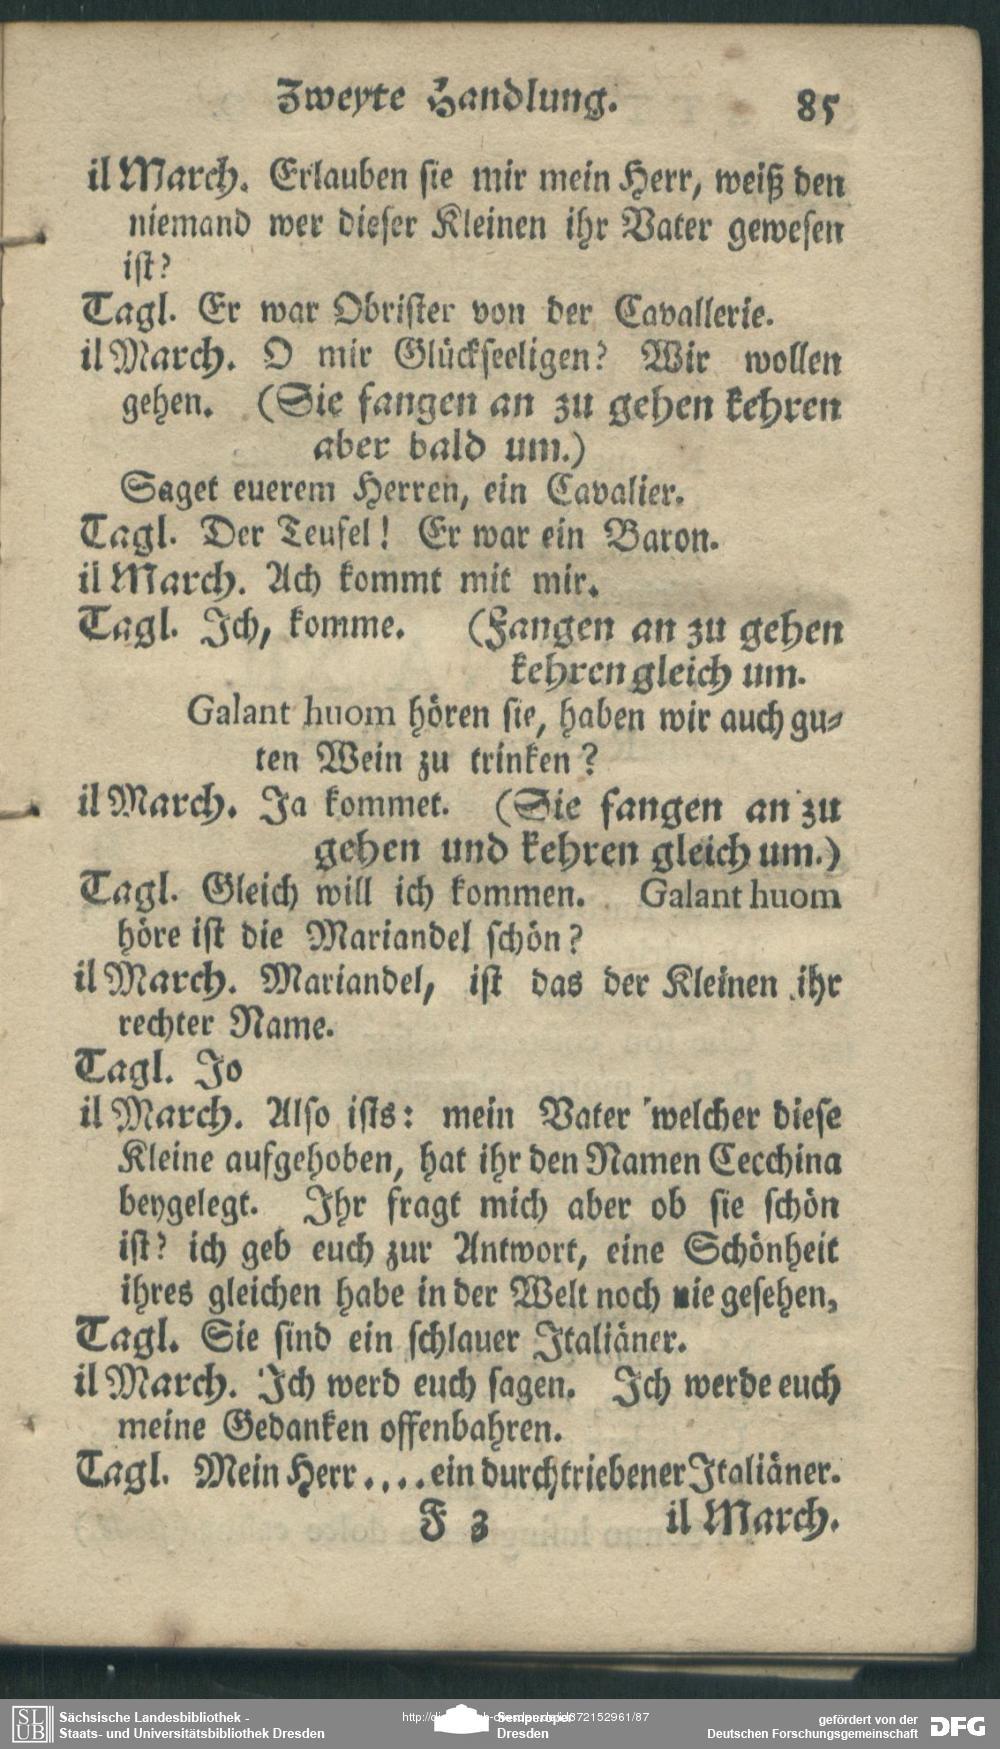 Zweyte Handlung. 85
il March. Erlauben sie mir mein Herr, weiß den
niemand wer dieser Kleinen ihr Vater gewesen
ist?
Tagl. Er war Obrister von der Cavallerie.
il March. O mir Glückseeligen? Wir wollen
gehen. (Sie fangen an zu gehen kehren
aber bald um.)
Saget euerem Herren, ein Cavalier.
Tagl. Der Teufel! Er war ein Baron.
il March. Ach kommt mit mir.
Tagl. Ich, komme. (Fangen an zu gehen
kehren gleich um.
Galant huom hören sie, haben wir auch gu-
ten Wein zu trinken?
il March. Ja kommet. (Sie fangen an zu
gehen und kehren gleich um.)
Tagl. Gleich will ich kommen. Galant huom
höre ist die Mariandel schön?
il March. Mariandel, ist das der Kleinen ihr
rechter Name.
Tagl. Jo
il March. Also ists: mein Vater welcher diese
Kleine aufgehoben, hat ihr den Namen Cecchina
beygelegt. Ihr fragt mich aber ob sie schön
ist? ich geb euch zur Antwort, eine Schönheit
ihres gleichen habe in der Welt noch nie gesehen,
Tagl. Sie sind ein schlauer Italiäner.
il March. Ich werd euch sagen. Ich werde euch
meine Gedanken offenbahren.
Tagl. Mein Herr.... ein durchtriebener Italiäner.
F 3 il March.
SLUB Sächsische Landesbibliothek -
Staats- und Universitätsbibliothek Dresden
Semperoper
Dresden
gefördert von der
Deutschen Forschungsgemeinschaft
DFG